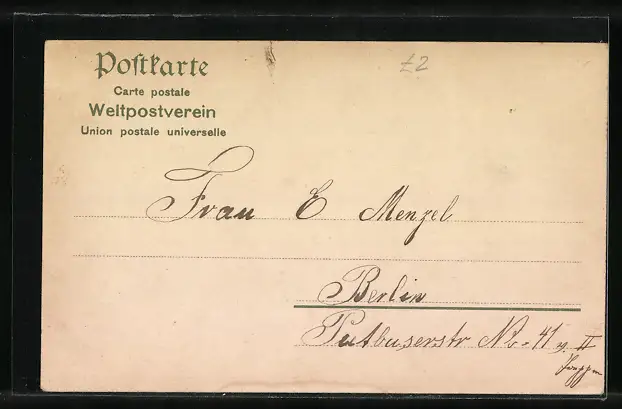 Postkarte
Carte postale
Weltpostverein
Union postale universelle
£2
Frau E Menzel
Berlin
Putbuserstr No 41 v. II